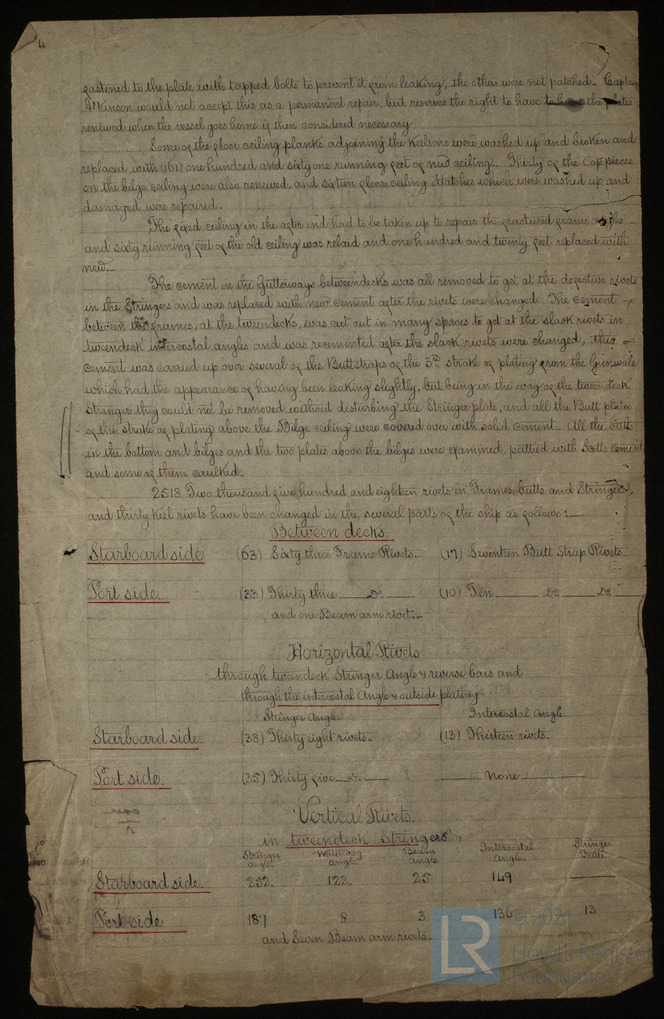 4
fastened to the plate with tapped bolts to prevent it from leaking, the others were not patched. Captain
Atkinson would not accept this as a permanent repair, but reserves the right to have to have the plates
renewed when the vessel goes home if then considered necessary
Some of the floor ceiling planks adjoining the Keilsons were washed up and broken and
replaced with (161) one hundred and sixty one running feet of new ceiling. Thirty of the Cap pieces
on the bilge ceiling were also renewed, and sixteen floor ceiling Hatches which were washed up and
damaged were repaired.
The fixed ceiling in the after end had to be taken up to repair the fractured frame angles
and sixty running feet of the old ceiling was relaid and one hundred and twenty feet replaced with
new.
The cement in the Guttaways betweendecks was all removed to get at the defective rivets
in the Stringers and was replaced with new cement after the rivets were changed. The cement
between the frames, at the tweendecks, was cut out in many spaces to get at the slack rivets in
tweendeck intercostal angles and was recemented after the slack rivets were changed, this
cement was carried up over several of the Buttstraps of the 3rd strake of plating from the Gunwale
which had the appearance of having been leaking slightly, but being in the way of the tweendeck
Stringer they could not be removed without disturbing the Stringer plate, and all the Butt plates
of the strake of plating above the Bilge ceiling were covered over with solid cement. All the butts
in the bottom and bilges and the two plates above the bilges were examined, puttied with Scotts Cement
and some of them caulked.
2518 Two thousand five hundred and eighteen rivets in Frames, butts and Stringers,
and thirty Keel rivets have been changed in the several parts of the ship as follows:
Between decks.
Starboard side (63) Sixty three Frame Rivets. (17) Seventeen Butt Strap Rivets
Port side. (33) Thirty three Do (10) Ten Do Do
and one Beam arm rivet.
Horizontal Rivets
through tweendeck Stringer Angle & reverse bars and
through the intercostal Angle & outside plating
Stringer Angle. Intercostal Angle
Starboard side. (38) Thirty eight rivets. (13) Thirteen rivets.
Port side. (35) Thirty five Do None
Vertical Rivets.
in tweendeck Stringers
Stringer Angle. Waterway Angle. Beam Angle Intercostal Angle. Stringer Butts.
Starboard side. 252 122 25 149
Port side 187 8 3 136 13
and Seven Beam arm rivets.
LR
© 2021
Lloyd's Register
Foundation